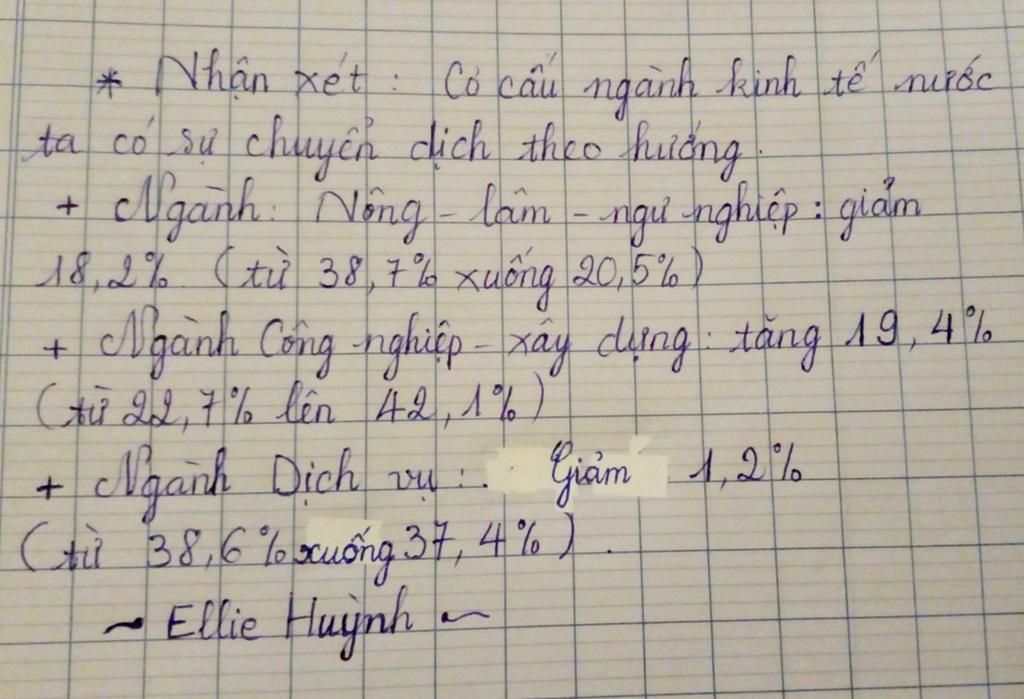 * Nhận xét: Cơ cấu ngành kinh tế nước
ta có sự chuyển dịch theo hướng.
+ Ngành: Nông - lâm - ngư nghiệp: giảm
18,2% (từ 38,7% xuống 20,5%)
+ Ngành Công nghiệp - xây dựng: tăng 19,4%
(từ 22,7% lên 42,1%)
+ Ngành Dịch vụ: Giảm 1,2%
(từ 38,6% xuống 37,4%).
~ Ellie Huỳnh ~